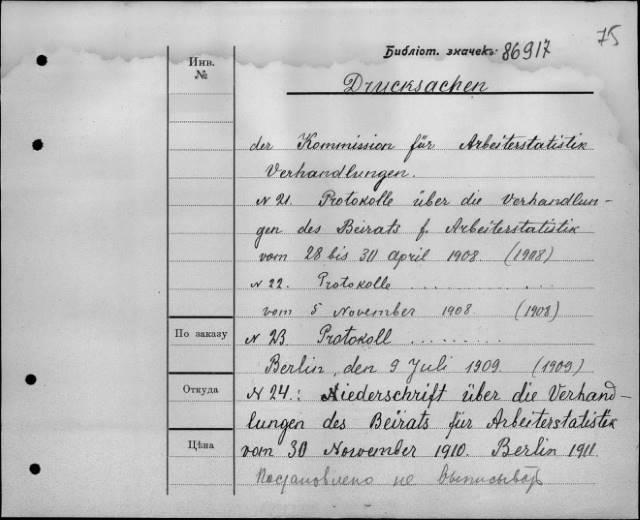 75
Библіот. значекъ 86917
Инв. №
Drucksachen
der Kommission für Arbeiterstatistik
Verhandlungen.
N 21. Protokolle über die Verhandlun-
gen des Beirats f. Arbeiterstatistik
vom 28 bis 30 April 1908. (1908)
N 22. Protokolle . . . . . . . .
vom 5 November 1908. (1908)
По заказу
N 23 Protokoll . . . . . . . . .
Berlin, den 9 Juli 1909. (1909)
Откуда
N 24.: Niederschrift über die Verhand-
lungen des Beirats für Arbeiterstatistik
Цѣна
vom 30 November 1910. Berlin 1911.
Постановлено не выписывать